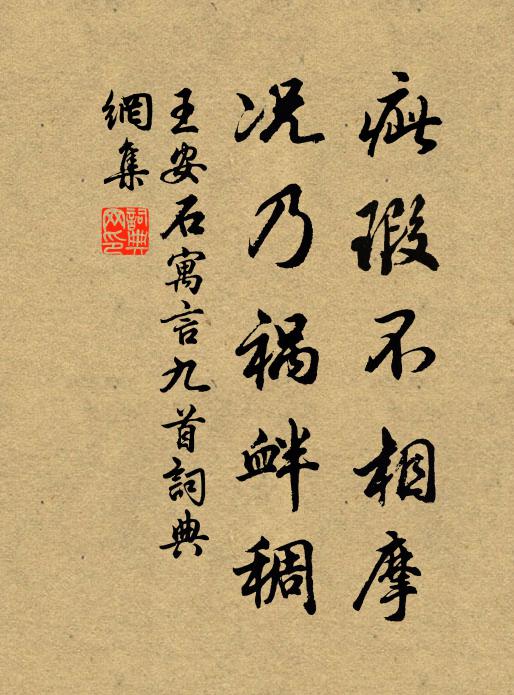 疵瑕不相摩
况乃祸衅稠
王安石寓言九首詞典
網集
詞典网印